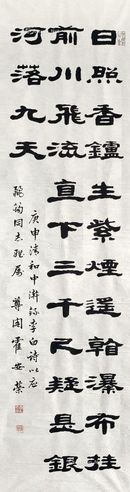 日照香鑪生紫煙遙看瀑布挂
前川飛流直下三千尺疑是銀
河落九天
庚申清和中澣錄李白詩以应
同志雅屬 尊聞霍安榮